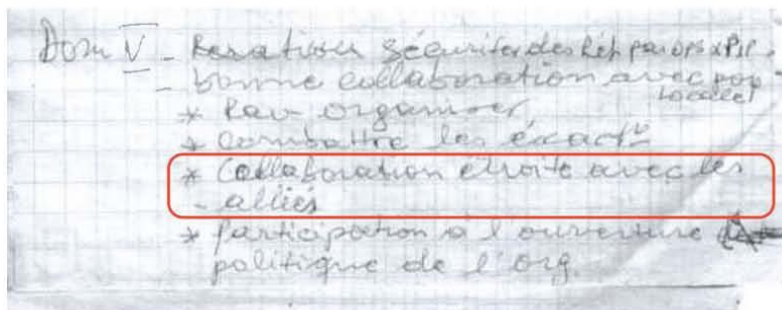 Dom V - sécuriser des Réf par ops
- bonne collaboration avec pop
locales
* Rav organiser
* Combattre les exactº
* Collaboration étroite avec les
- alliés
* participation à l'ouverture
politique de l'org.